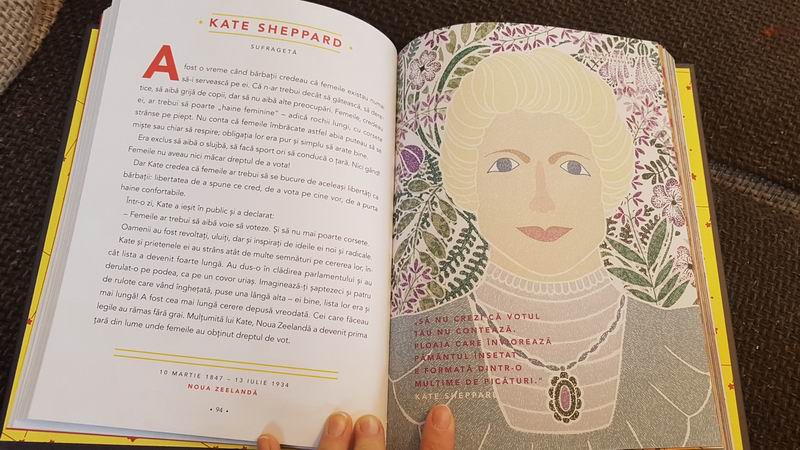 KATE SHEPPARD
SUFRAGETĂ
A fost o vreme când bărbații credeau că femeile existau numai
să-i servească pe ei. Că n-ar trebui decât să gătească, să dere-
tice, să aibă grijă de copii, dar să nu aibă alte preocupări. Femeile, credeau
ei, ar trebui să poarte „haine feminine” – adică rochii lungi, cu corsete
strânse pe piept. Nu conta că femeile îmbrăcate astfel abia puteau să se
miște sau chiar să respire; obligația lor era pur și simplu să arate bine.
Era exclus să aibă o slujbă, să facă sport ori să conducă o țară. Nici gând!
Femeile nu aveau nici măcar dreptul de a vota!
Dar Kate credea că femeile ar trebui să se bucure de aceleași libertăți ca
bărbații: libertatea de a spune ce cred, de a vota pe cine vor, de a purta
haine confortabile.
Într-o zi, Kate a ieșit în public și a declarat:
– Femeile ar trebui să aibă voie să voteze. Și să nu mai poarte corsete.
Oamenii au fost revoltați, uluiți, dar și inspirați de ideile ei noi și radicale.
Kate și prietenele ei au strâns atât de multe semnături pe cererea lor, în-
cât lista a devenit foarte lungă. Au dus-o în clădirea parlamentului și au
derulat-o pe podea, ca pe un covor uriaș. Imaginează-ți șaptezeci și patru
de rulote care vând înghețată, puse una lângă alta – ei bine, lista lor era și
mai lungă! A fost cea mai lungă cerere depusă vreodată. Cei care făceau
legile au rămas fără grai. Mulțumită lui Kate, Noua Zeelandă a devenit prima
țară din lume unde femeile au obținut dreptul de vot.
10 MARTIE 1847 – 13 IULIE 1934
NOUA ZEELANDĂ
• 94 •
„SĂ NU CREZI CĂ VOTUL
TĂU NU CONTEAZĂ.
PLOAIA CARE ÎNVIOREAZĂ
PĂMÂNTUL ÎNSETAT
E FORMATĂ DINTR-O
MULȚIME DE PICĂTURI.”
KATE SHEPPARD